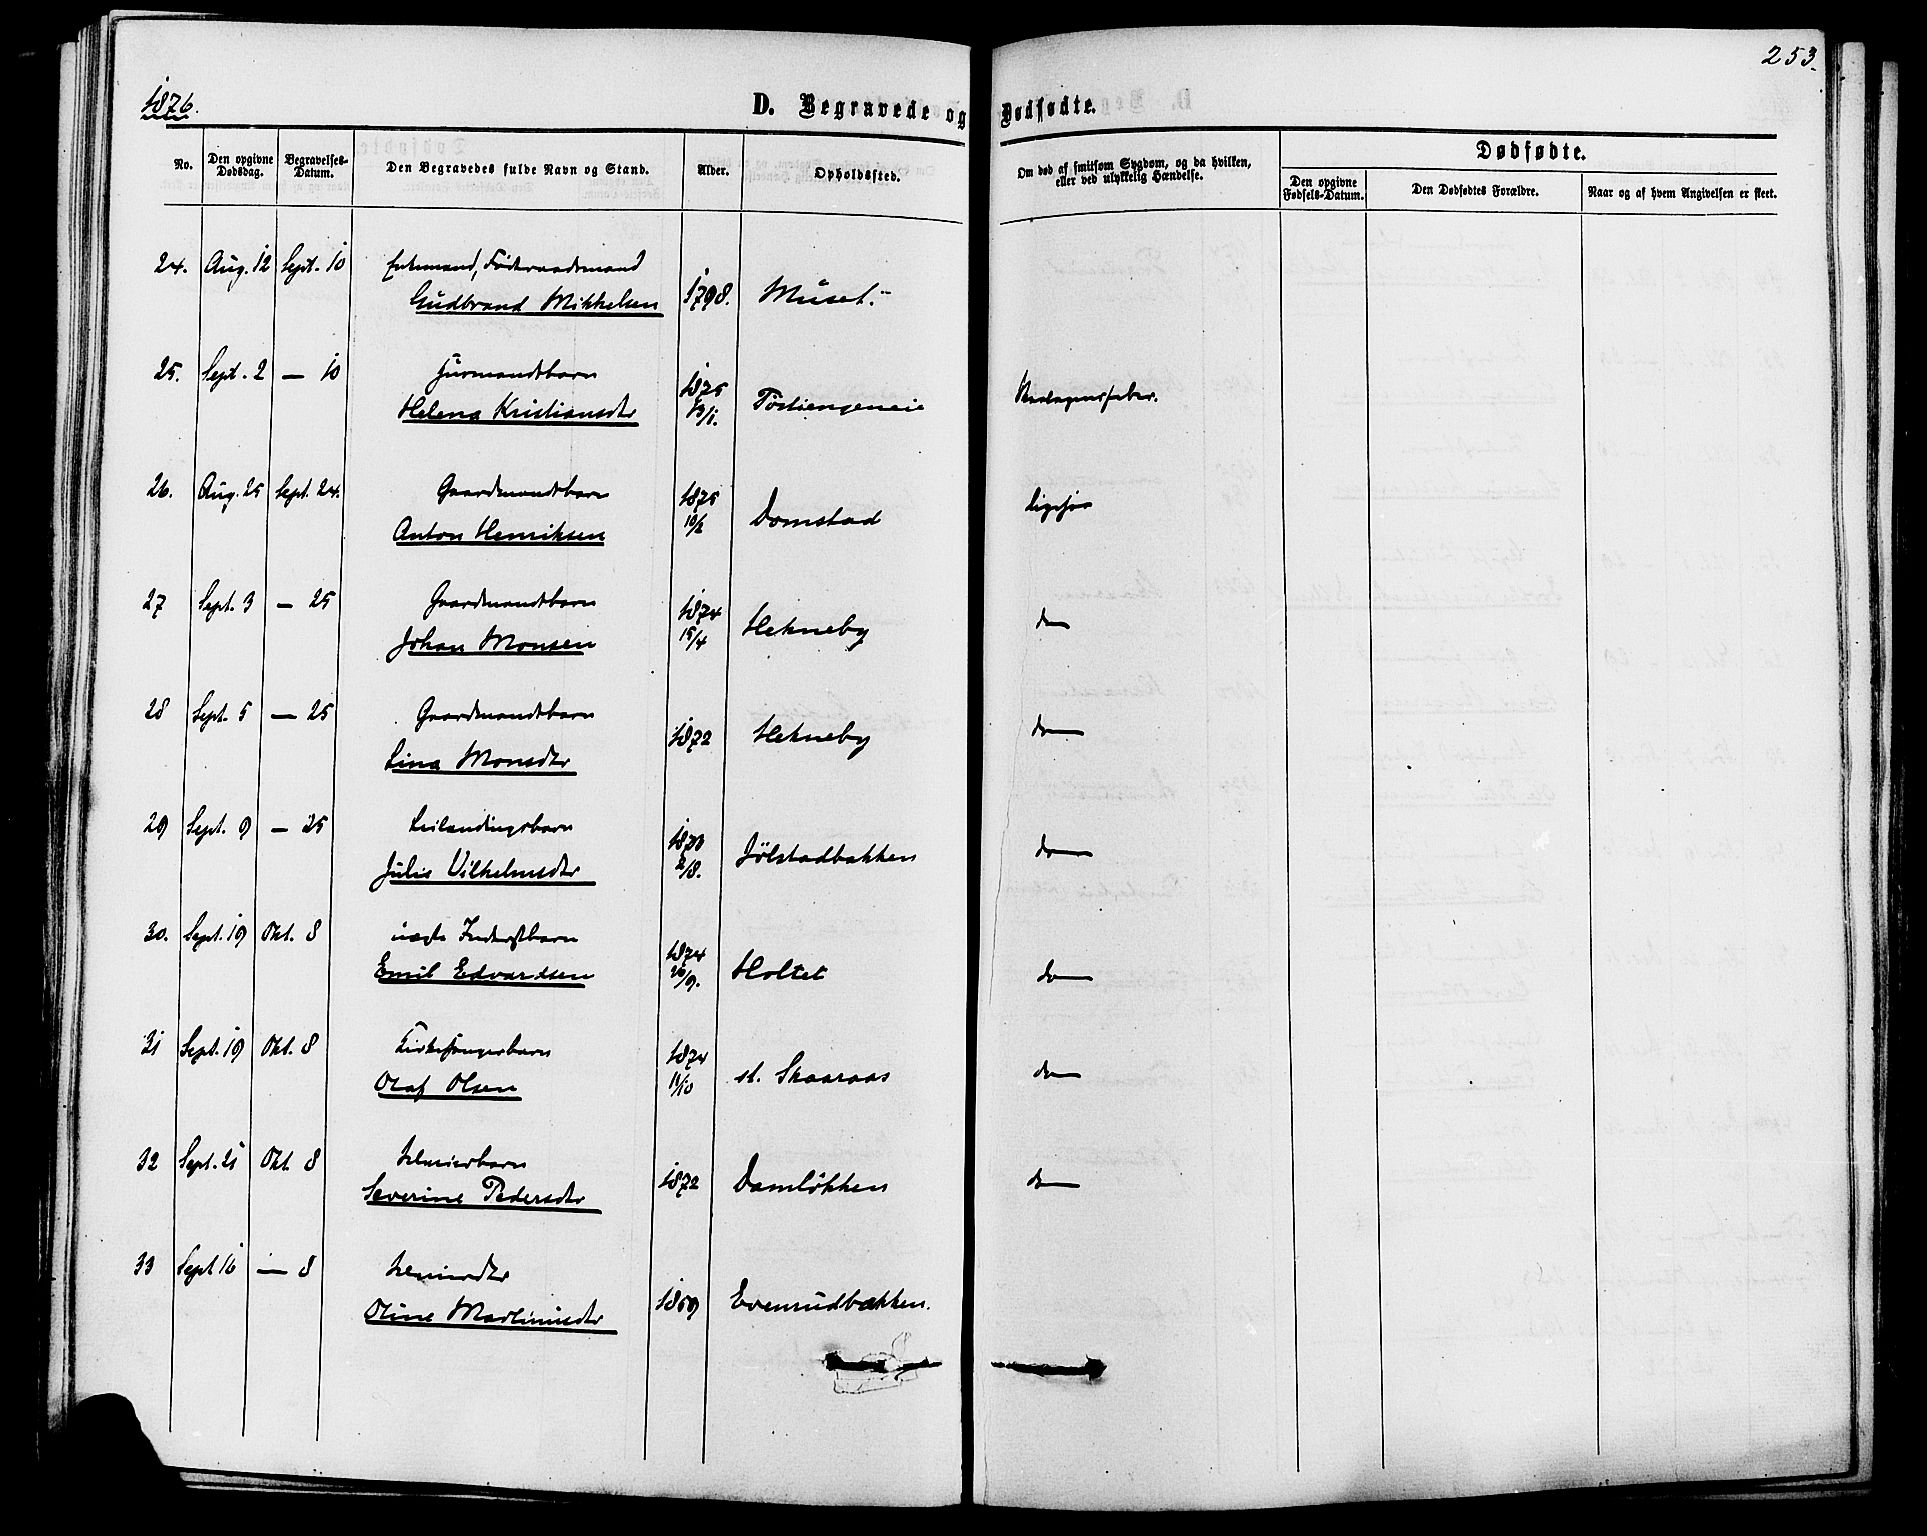 253.
1876.
D. Begravede og Dødfødte.
No.
Den opgivne Dødsdag.
Begravelses-Datum.
Den Begravedes fulde Navn og Stand.
Alder.
Opholdssted.
Om død af smitsom Sygdom, og da hvilken, eller ved ulykkelig Hændelse.
Dødfødte.
Den opgivne Fødsels-Datum.
Den Dødfødtes Forældre.
Naar og af hvem Angivelsen er skeet.
24. Aug. 12 Sept. 10 Enkemand, Føderaadsmand
Gudbrand Mikkelsen 1798. Muset.
25. Sept. 2 — 10
Helena Kristiansdtr 1875 13/1.
26. Aug. 25 Sept. 24. Gaardmandsbarn
Anton Henriksen 1875 10/2 Domstad Ligesaa
27 Sept. 3 — 25 Gaardmandsbarn
Johan Monsen 1874 15/4 Hekneby do
28 Sept. 5 — 25 Gaardmandsbarn
Lina Monsdtr 1872 Hekneby do
29 Sept. 9 — 25 Leilendingsbarn
Julie Vilhelmsdtr 1873 2/8. Jølstadbakken do
30. Sept. 19 Okt. 8 uægte Inderstbarn
Emil Edvardsen 1874 26/9. Holtet do
31 Sept. 19 Okt. 8 Kirkesangerbarn
Olaf Olsen 1874 11/10 st. Skaaraas do
32 Sept. 21 Okt. 8 Selveierbarn
Severine Pedersdtr 1872 Damløkken do
33 Sept 16 — 8 Selveierdtr
Oline Martinusdtr 1859 Evensudbakken.